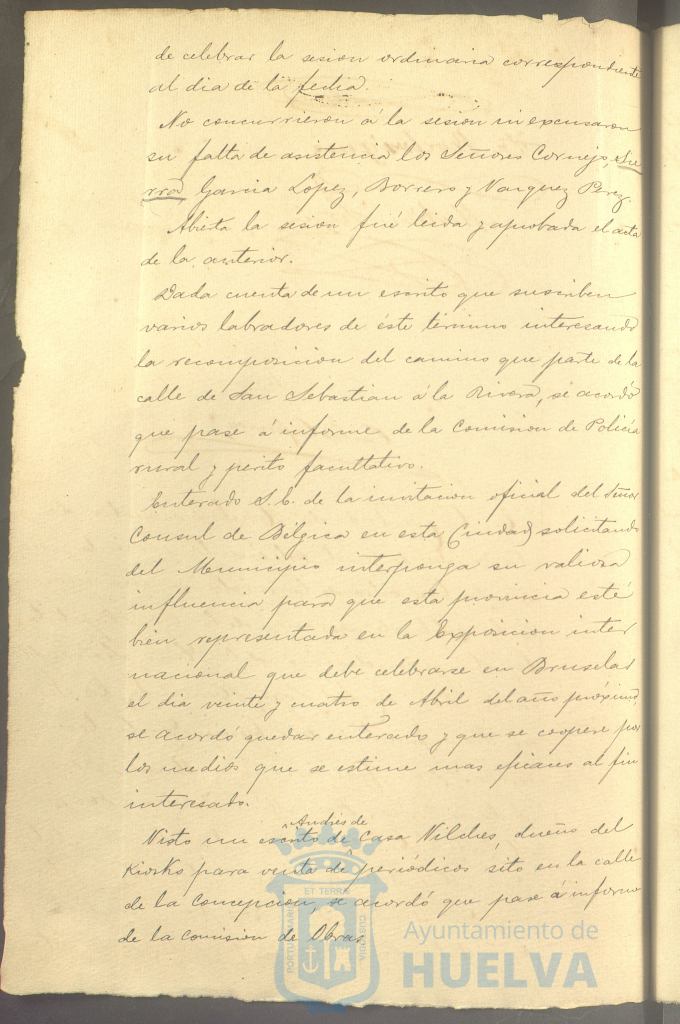 de celebrar la sesion ordinaria correspondiente
al dia de la fecha.
No concurrieron á la sesion ni excusaron
su falta de asistencia los Señores Cornejo, Sie
rra Garcia Lopez, Borrero y Vazquez Perez.
Abierta la sesion fué leida y aprobada el acta
de la anterior.
Dada cuenta de un escrito que suscriben
varios labradores de éste término interesando
la recomposicion del camino que parte de la
calle de San Sebastian á la Rivera, se acordó
que pase á informe de la Comision de Policía
rural y perito facultativo.
Enterado S.E. de la invitacion oficial del Señor
Consul de Bélgica en esta Ciudad solicitando
del Municipio interponga su valiosa
influencia para que esta provincia esté
bien representada en la Exposicion inter
nacional que debe celebrarse en Bruselas
el dia veinte y cuatro de Abril del año próximo,
se acordó quedar enterado y que se coopere por
los medios que se estime mas eficaces al fin
interesado.
Andres de
Visto un escrito de Casa Vilches, dueño del
Kiosko para venta de periódicos sito en la calle
de la Concepcion, se acordó que pase á informe
de la Comision de Obras.
PORTUS MARIS ET TERRÆ CUSTODIA
Ayuntamiento de
HUELVA